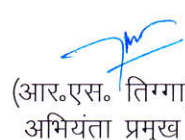 (आर०एस० तिग्गा
अभियंता प्रमुख